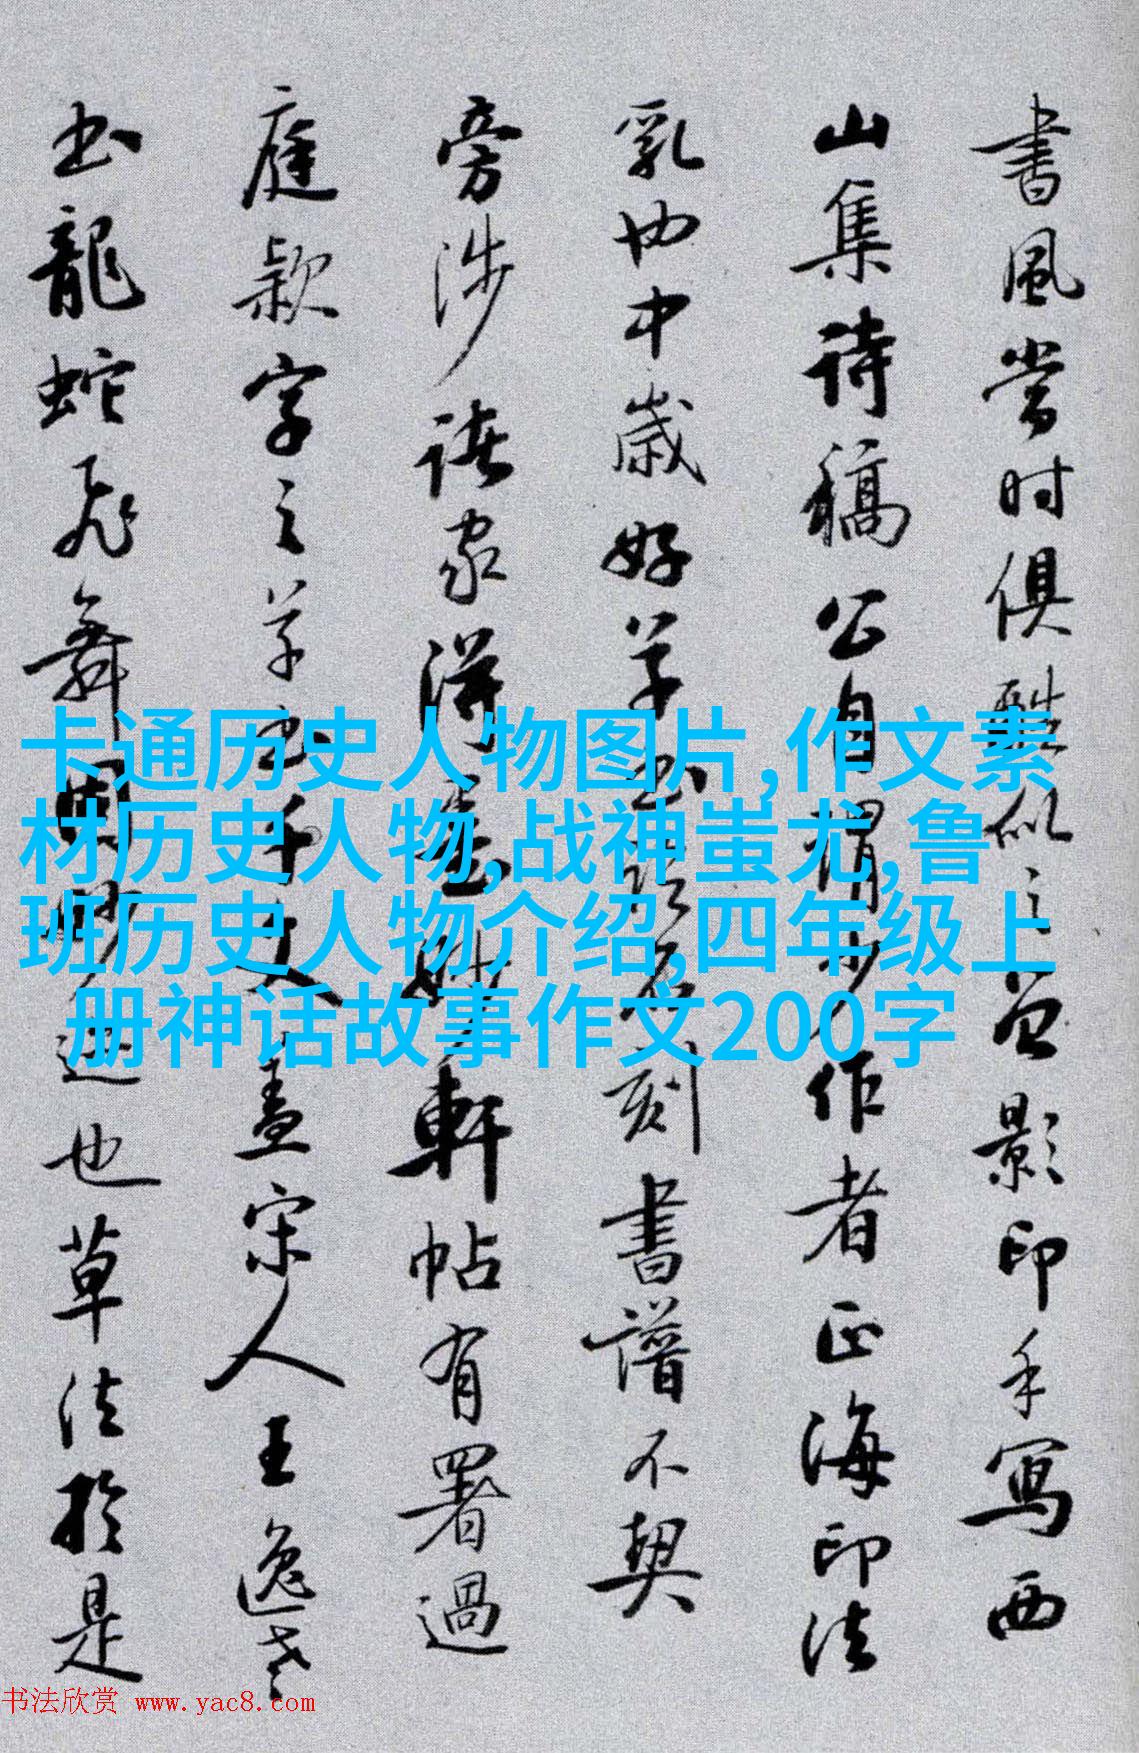 卡通历史人物图片,作文素
材历史人物,战神蚩尤,鲁
班历史人物介绍,四年级上
册神话故事作文200字
書風當时俱酷似之曾影印手寫西
山集诗稿公自謂少作者正海印法
乳也中歲好草書刻書譜不契
旁涉諸家得軒帖有署過
庭款字之草书千文蓋宋人王逸老
书龍蛇飛舞妙也草法於是
书法欣赏 www.yac8.com